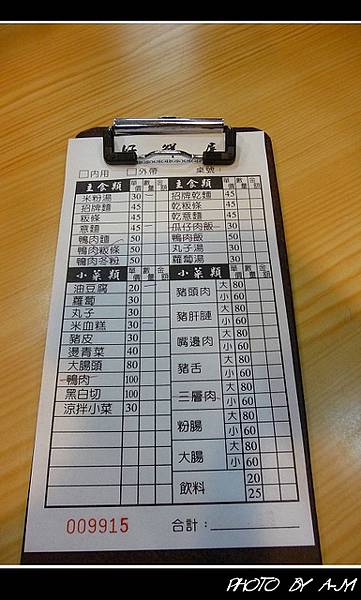 □內用 □外帶 桌號：
主食類 單價 數量 金額 主食類 單價 數量 金額
米粉湯 30 招牌乾麵 45
招牌麵 45 乾粄條 45
粄條 45 乾意麵 45
意麵 45 瓜仔肉飯 30
鴨肉麵 50 鴨肉飯 50
鴨肉粄條 50 丸子湯 30
鴨肉冬粉 50 蘿蔔湯 30
小菜類 單價 數量 金額 小菜類 單價 數量 金額
油豆腐 20
蘿蔔 30
丸子 30
米血糕 30
豬皮 30
燙青菜 40
大腸頭 80
鴨肉 100
黑白切 100
涼拌小菜 30
豬頭肉 大 80 小 60
豬肝腱 大 80 小 60
嘴邊肉 大 80 小 60
豬舌 大 80 小 60
三層肉 大 80 小 60
粉腸 大 80 小 60
大腸 大 80 小 60
飲料 20 25
009915 合計：
PHOTO BY A.M